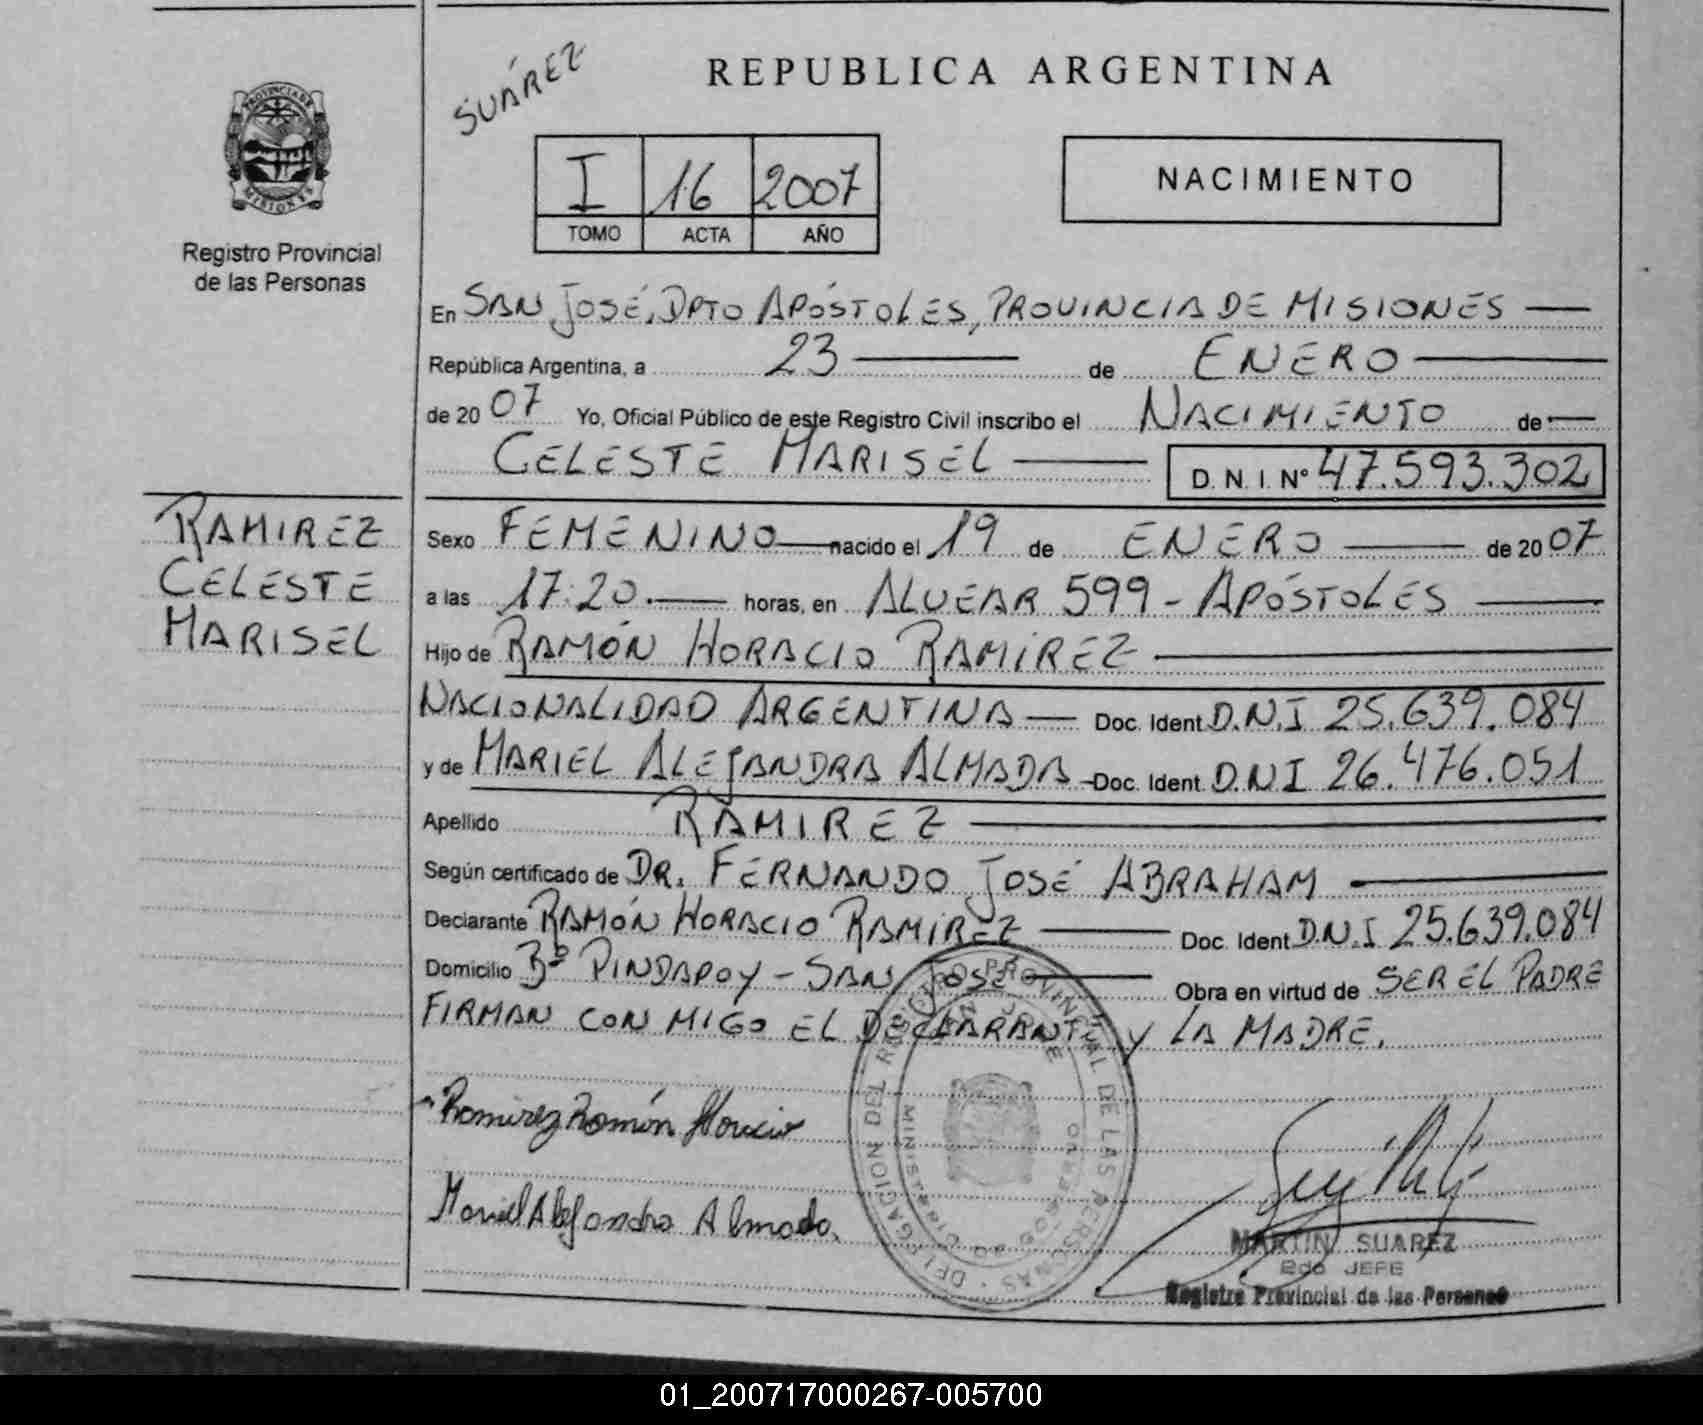 SUÁREZ
REPUBLICA ARGENTINA
PROVINCIA DE
MISIONES
Registro Provincial
de las Personas
I 16 2007
TOMO ACTA AÑO
NACIMIENTO
En SAN JOSÉ, DPTO APÓSTOLES, PROVINCIA DE MISIONES
República Argentina, a 23 de ENERO
de 20 07 Yo, Oficial Público de este Registro Civil inscribo el NACIMIENTO de
CELESTE MARISEL D.N.I. Nº 47.593.302
RAMIREZ
CELESTE
MARISEL
Sexo FEMENINO nacido el 19 de ENERO de 20 07
a las 17:20. horas, en ALVEAR 599 - APÓSTOLES
Hijo de RAMÓN HORACIO RAMÍREZ
NACIONALIDAD ARGENTINA Doc. Ident. D.N.I 25.639.084
y de MARIEL ALEJANDRA ALMADA Doc. Ident. D.N.I 26.476.051
Apellido RAMIREZ
Según certificado de DR. FERNANDO JOSÉ ABRAHAM
Declarante RAMÓN HORACIO RAMÍREZ Doc. Ident. D.N.I 25.639.084
Domicilio Bº PINDAPOY - SAN JOSÉ Obra en virtud de SER EL PADRE
FIRMAN CON MIGO EL DECLARANTE Y LA MADRE.
Ramirez Ramón Horacio
Mariel Alejandra Almada.
DELEGACION DEL REGISTRO PROVINCIAL DE LAS PERSONAS
SAN JOSE
MINISTERIO DE GOBIERNO
MARTIN SUAREZ
2do JEFE
Registro Provincial de las Personas
01_200717000267-005700